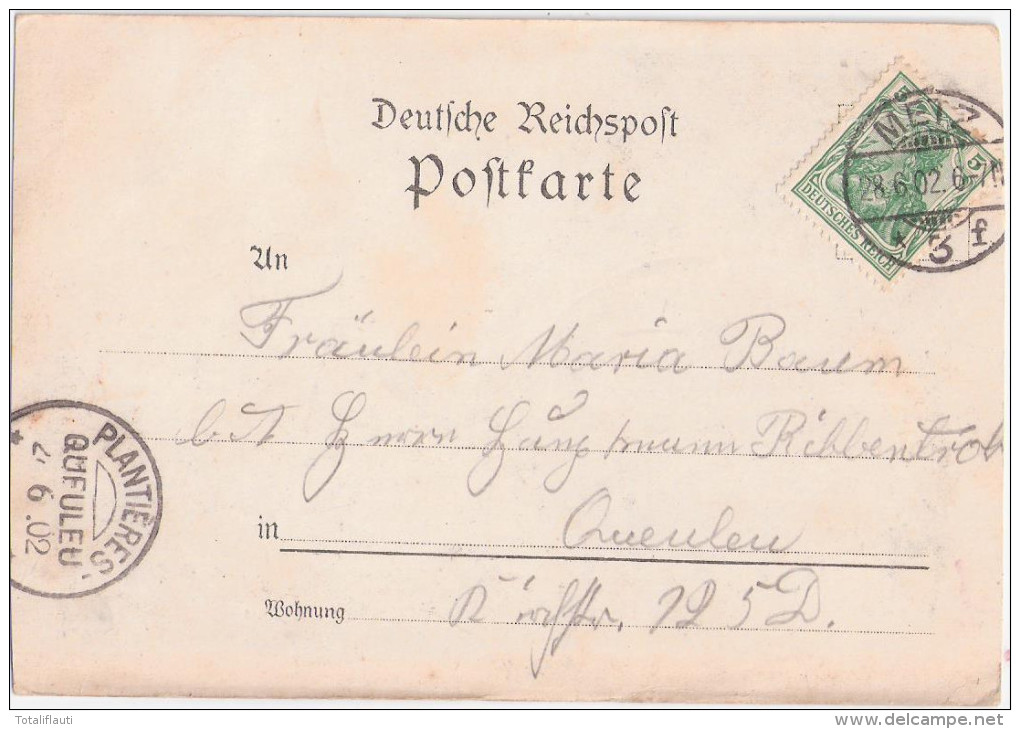 Deutsche Reichspost
Postkarte
METZ
28.6.02.6-7N
* 3 f
5 5
DEUTSCHES REICH
An
Fräulein Maria Baum
b. A Herrn Haupmann Ribbentrob
PLANTIÈRES-
QUEULEU
6.02
in Queuleu
Wohnung Kirchstr. 125 D.
Totaliflauti
www.delcampe.net